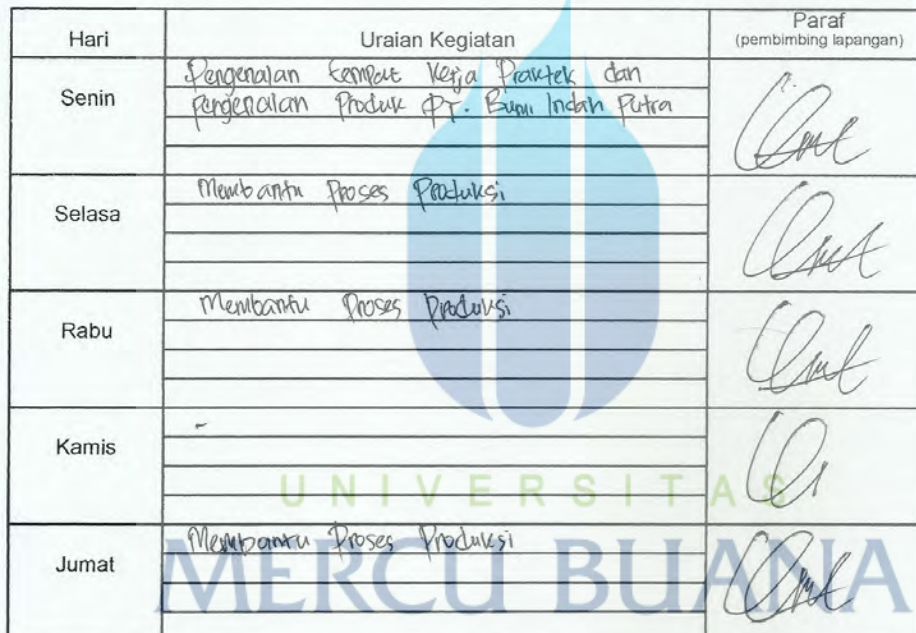 Hari Uraian Kegiatan Paraf
(pembimbing lapangan)
Senin
Pengenalan tempat Kerja Praktek dan
pengenalan Produk PT. Bumi Indah Putra
Selasa
Membantu Proses Produksi
Rabu
Membantu Proses Produksi
Kamis
-
UNIVERSITAS
Jumat
Membantu Proses Produksi
MERCU BUANA